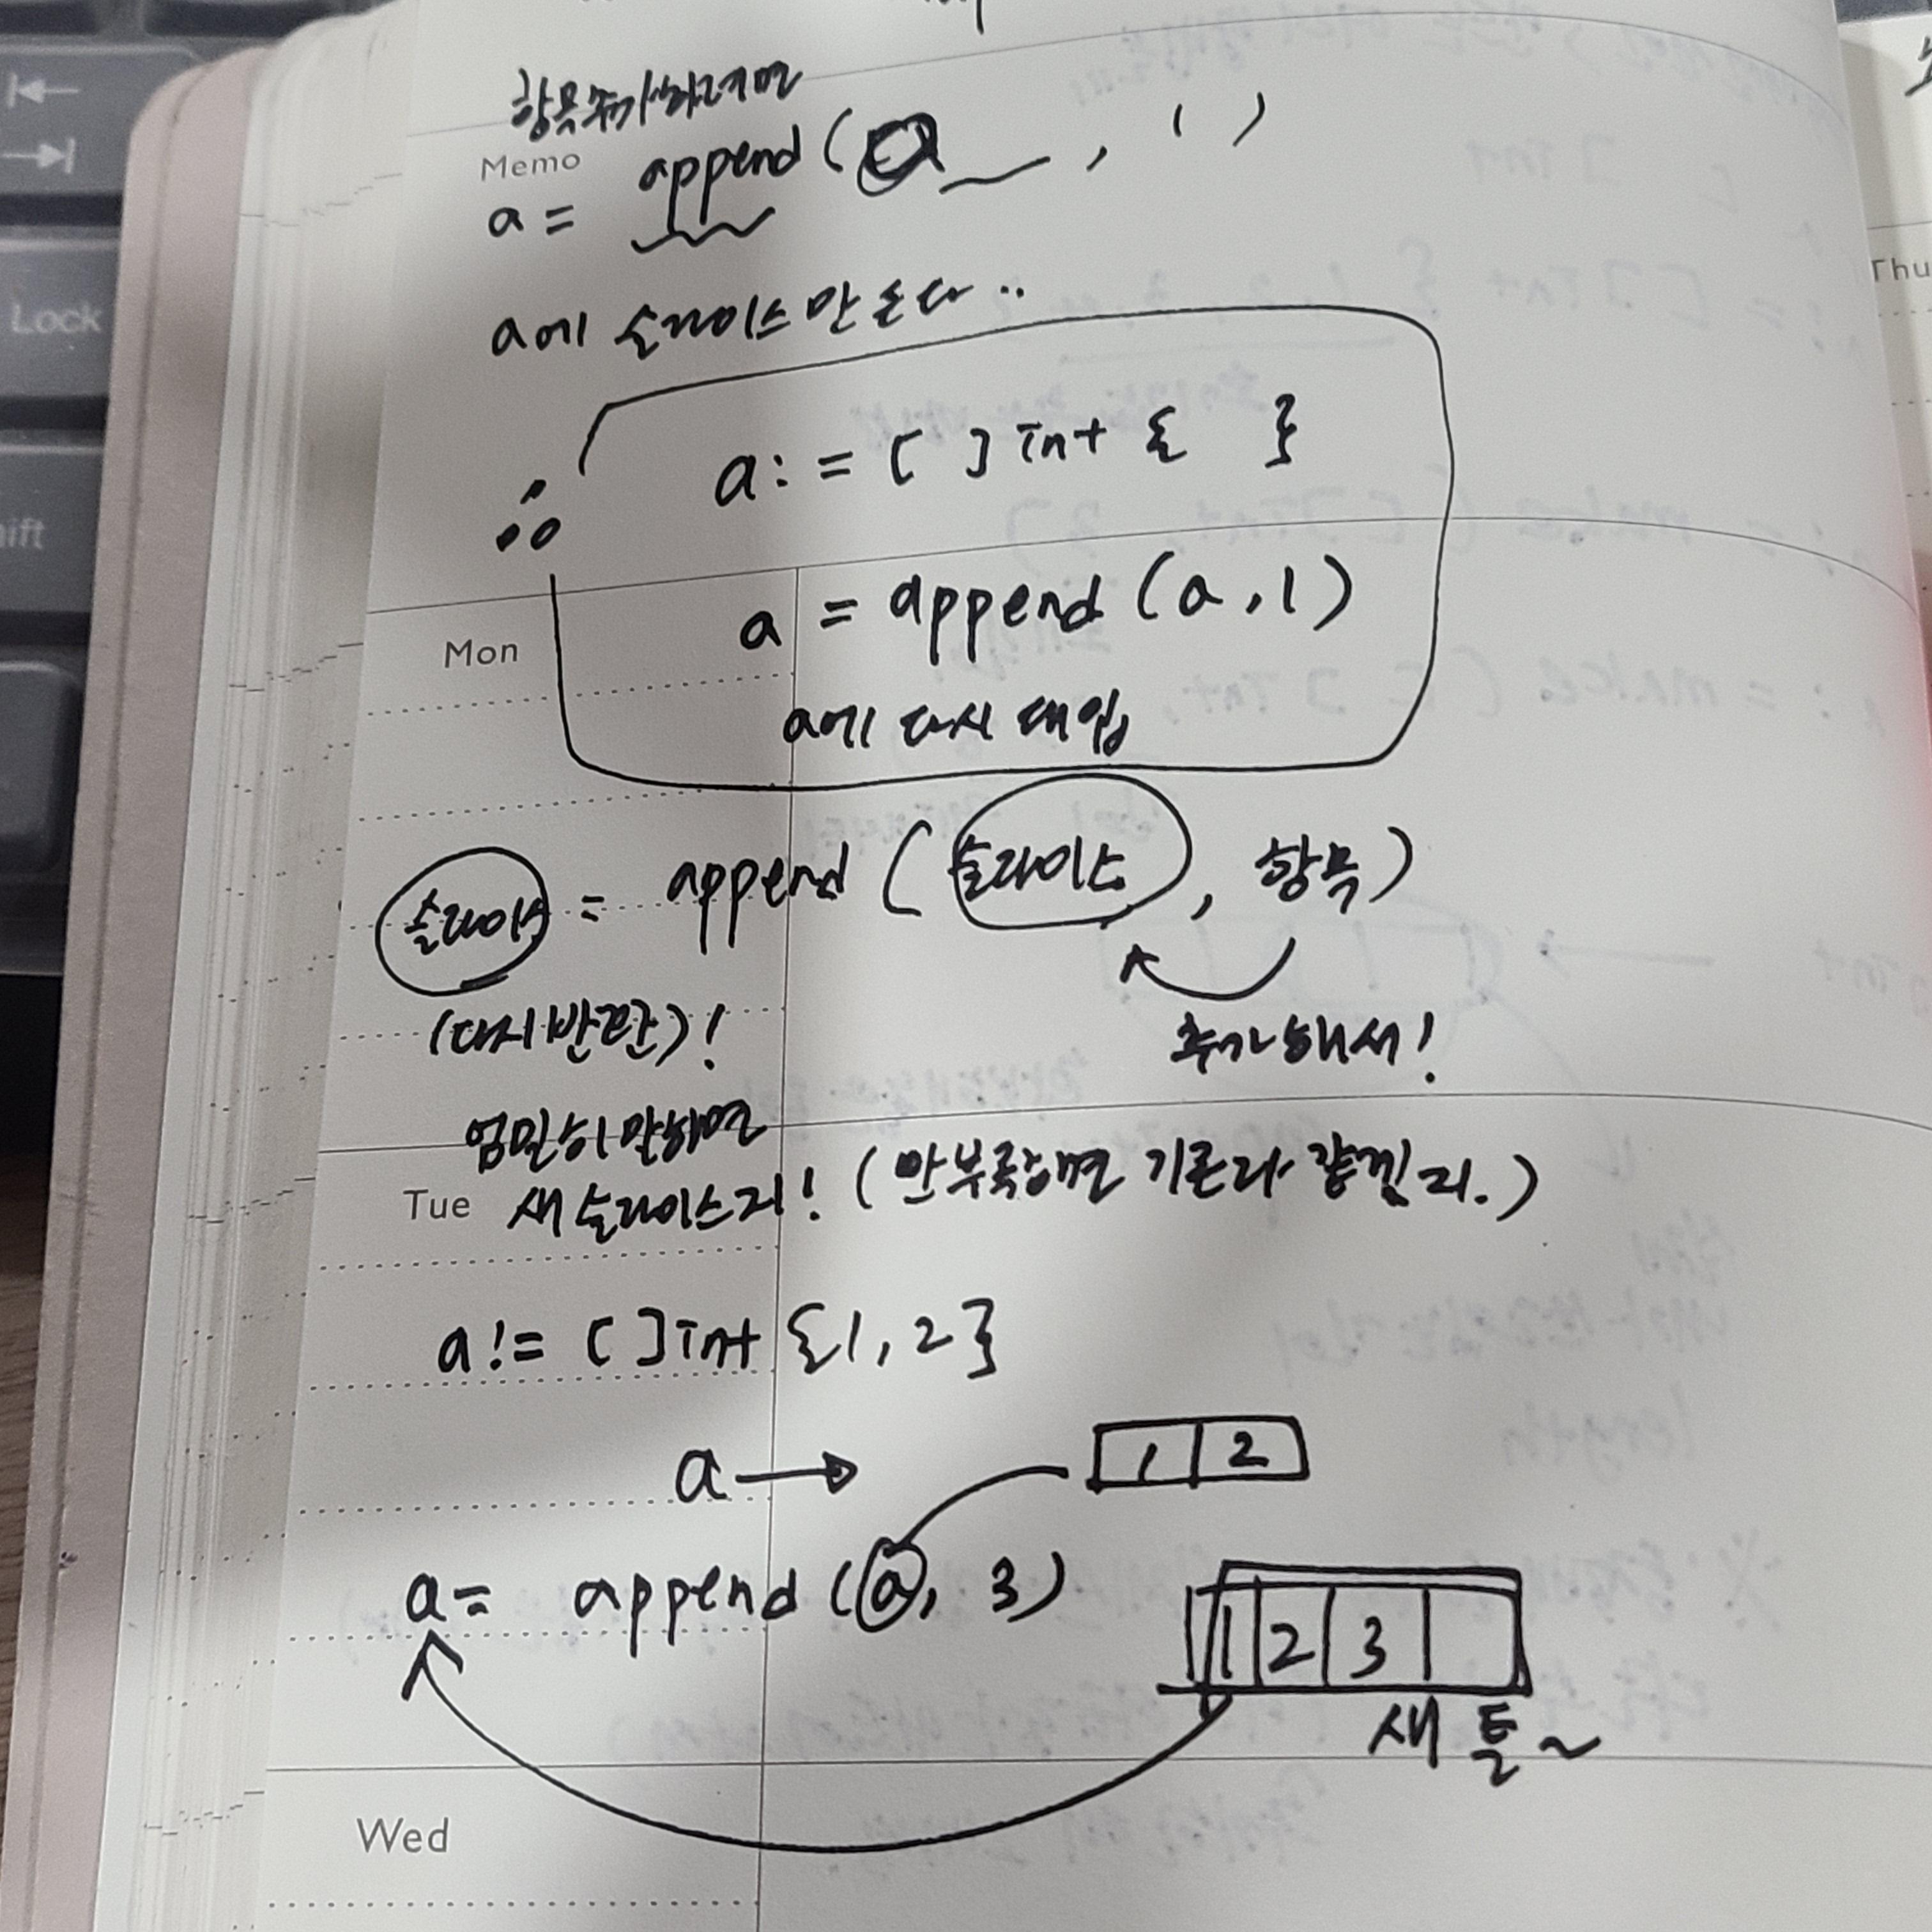 항목추가하려면
Memo
a = append(a , 1)
a에 슬라이스만 온다..
a := [ ] int { }
a = append (a, 1)
Mon
a에 다시 대입
슬라이스 = append (슬라이스, 항목)
(다시 반환)!
추가해서!
엄밀히 말하면
Tue
새 슬라이스지! (안부족하면 기존과 같긴 지.)
a != [ ] int {1, 2}
a → 1 2
a = append (a, 3)
1 2 3
새 틀~
Wed
Lock
Thu